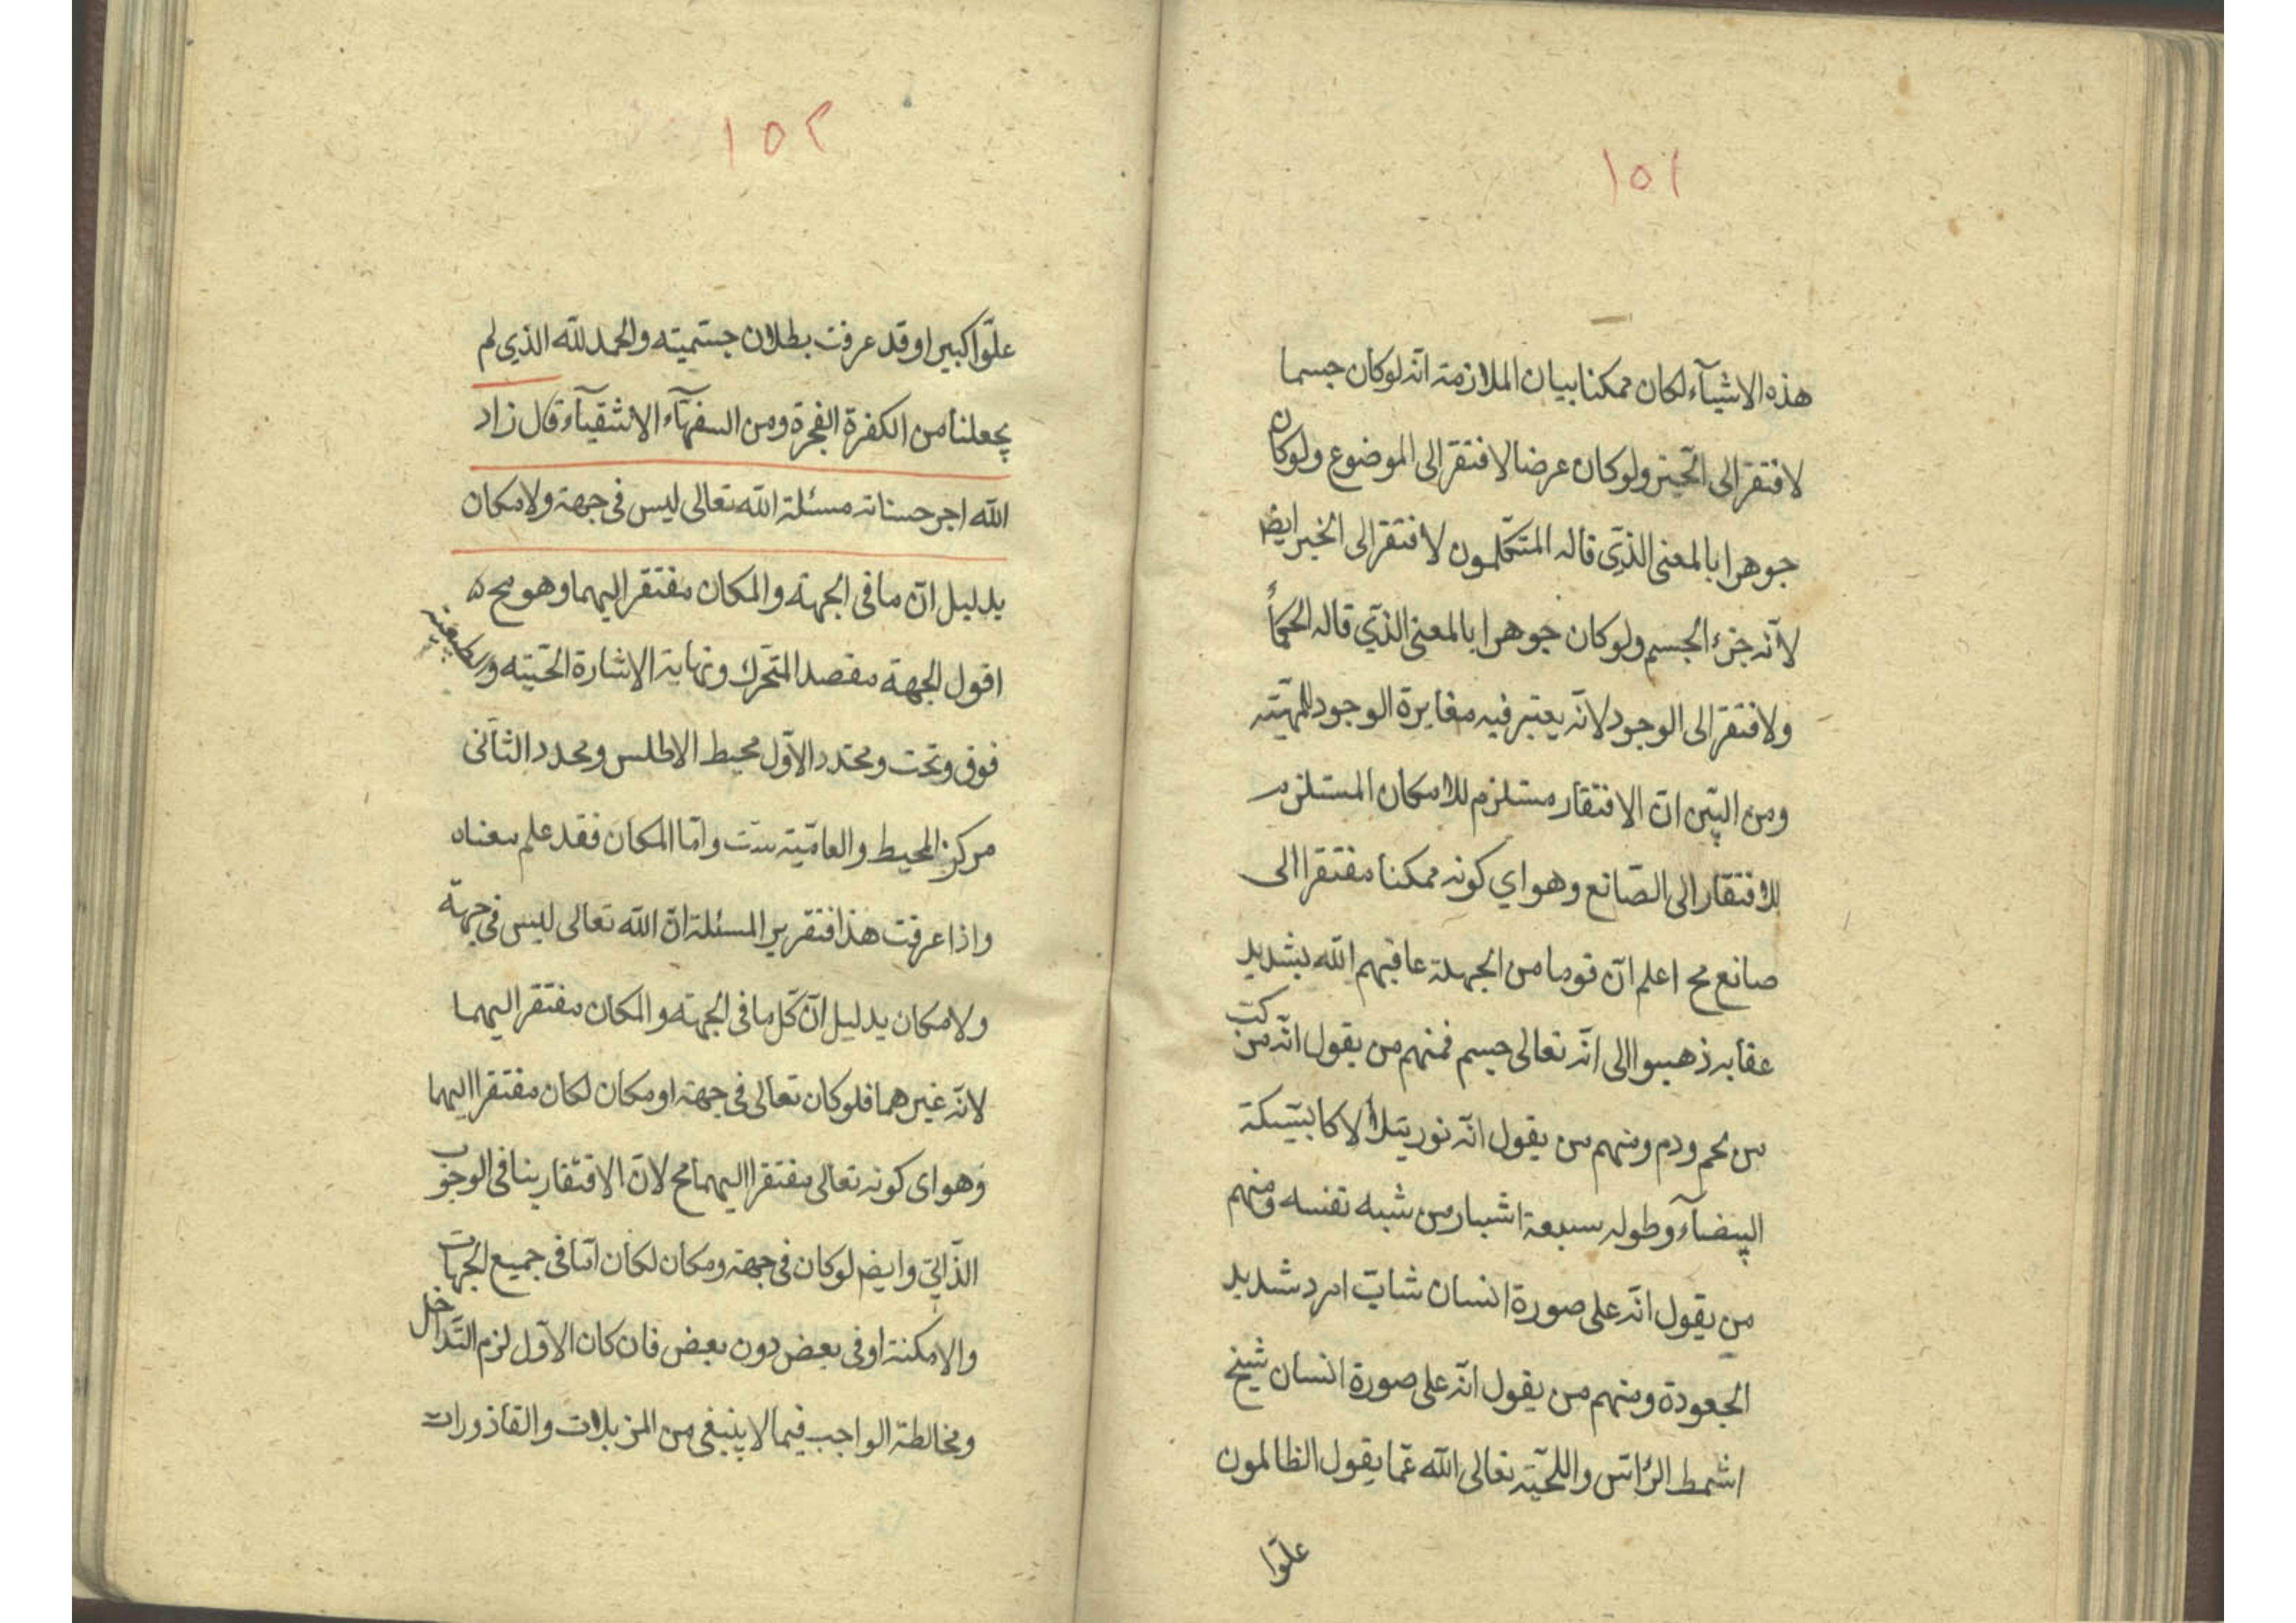 ١٥١
هذه الاشيآء لكان ممكنا بيان الملازمة انه لوكان جسما
لافتقر الى الحيز ولوكان عرضا لافتقر الى الموضوع ولوكان
جوهرا بالمعنى الذي قاله المتكلمون لافتقر الى الحيز ايضا
لانه جزء الجسم ولوكان جوهرا بالمعنى الذي قاله الحكمآء
ولافتقر الى الوجود لانه يعتبر فيه مغايرة الوجود للمهيته
ومن البين ان الافتقار مستلزم للامكان المستلزم
للافتقار الى الصانع وهو اي كونه ممكنا مفتقرا الى
صانع مح اعلم ان قوما من الجهلة عاقبهم الله بشديد
عقابه ذهبوا الى انه تعالى جسم فمنهم من يقول انه مركب
من لحم ودم ومنهم من يقول انه نور يتلألأ كالسبيكة
البيضآء وطوله سبعة اشبار من شبه نفسه ومنهم
من يقول انه على صورة انسان شاب امرد شديد
الجعودة ومنهم من يقول انه على صورة انسان شيخ
اشمط الرأس واللحية تعالى الله عما يقول الظالمون
علوا
١٥٢
علوا كبيرا وقد عرفت بطلان جسميته والحمد لله الذي لم
يجعلنا من الكفرة الفجرة ومن السفهآء الاشقيآء قال زاد
الله اجر حسناته مسئلة الله تعالى ليس فى جهة ولامكان
بدليل ان ما فى الجهة والمكان مفتقر اليهما وهو مح
اقول الجهة مقصد المتحرك ونهاية الاشارة الحسية
فوق وتحت ومحدد الاول محيط الاطلس ومحدد الثانى
مركز المحيط والعامية ست واما المكان فقد علم معناه
واذا عرفت هذا فتقرير المسئلة ان الله تعالى ليس فى جهة
ولامكان بدليل ان كل ما فى الجهة والمكان مفتقر اليهما
لانه غيرهما فلوكان تعالى فى جهة او مكان لكان مفتقرا اليهما
وهو اى كونه تعالى مفتقرا اليهما مح لان الافتقار ينافى الوجوب
الذاتي وايضا لوكان فى جهة ومكان لكان اما فى جميع الجهات
والامكنة او فى بعض دون بعض فان كان الاول لزم التداخل
ومخالطة الواجب فيما لاينبغى من المزبلات والقاذورات